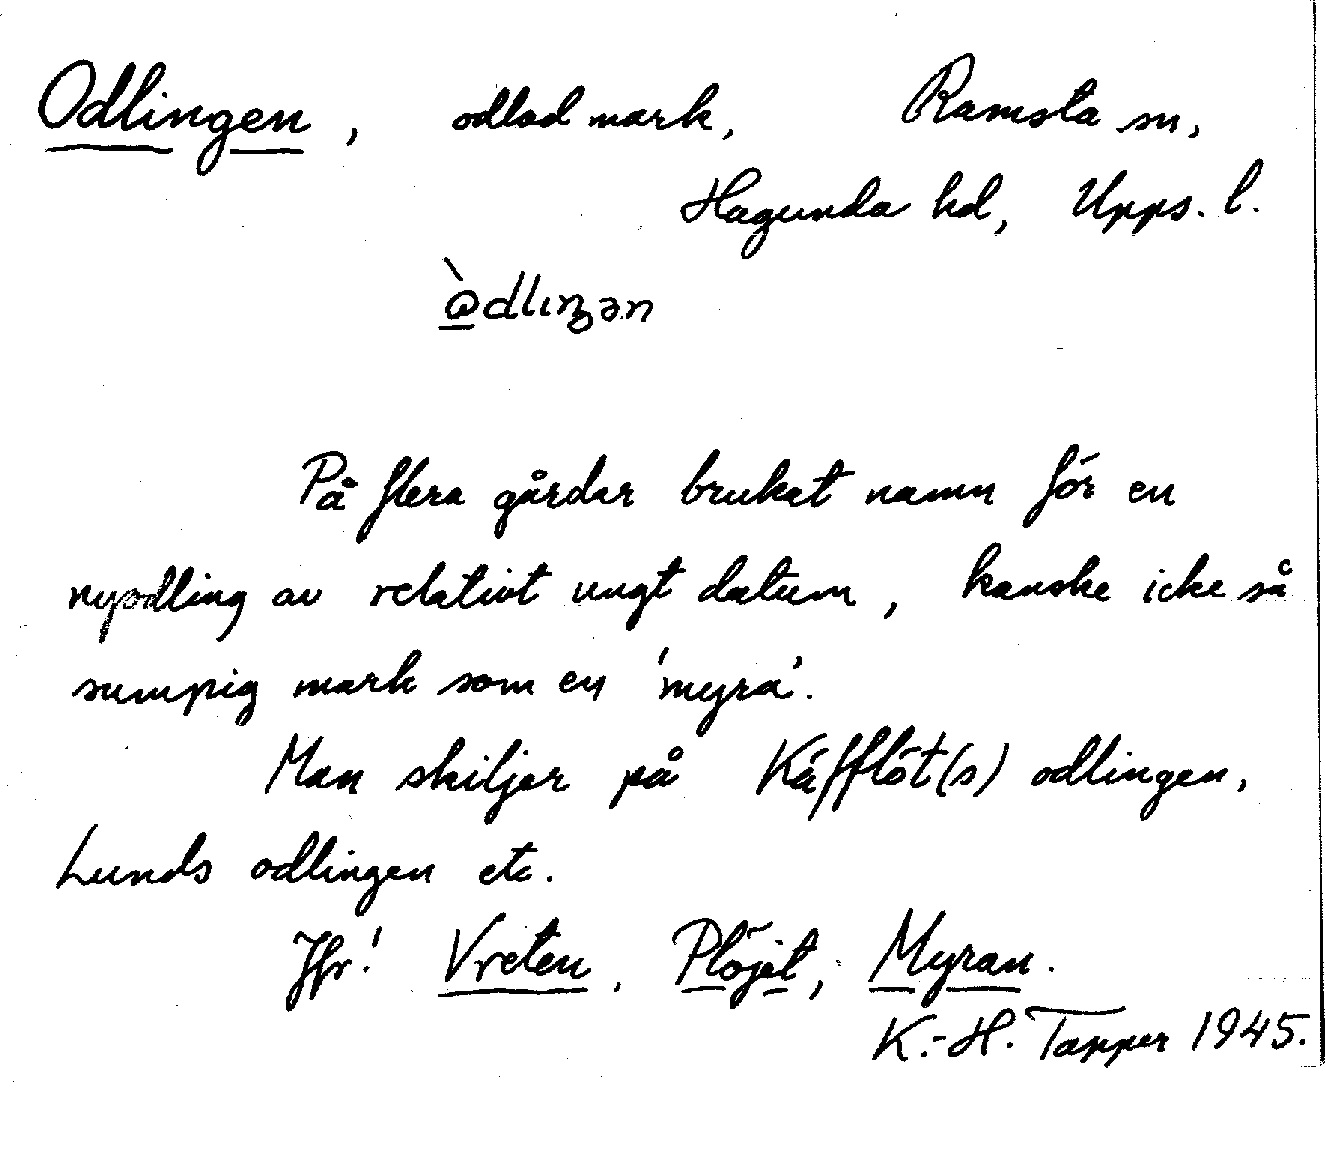 Odlingen, odlad mark, Ramsta sn,
Hagunda hd, Upps. l.
På flera gårdar brukat namn för en
nyodling av relativt ungt datum, kanske icke så
sumpig mark som en 'myra'.
Man skiljer på Käfflöt(s) odlingen,
Lunds odlingen etc.
Jfr! Vreten, Plöjet, Myran.
K.-H. Tapper 1945.